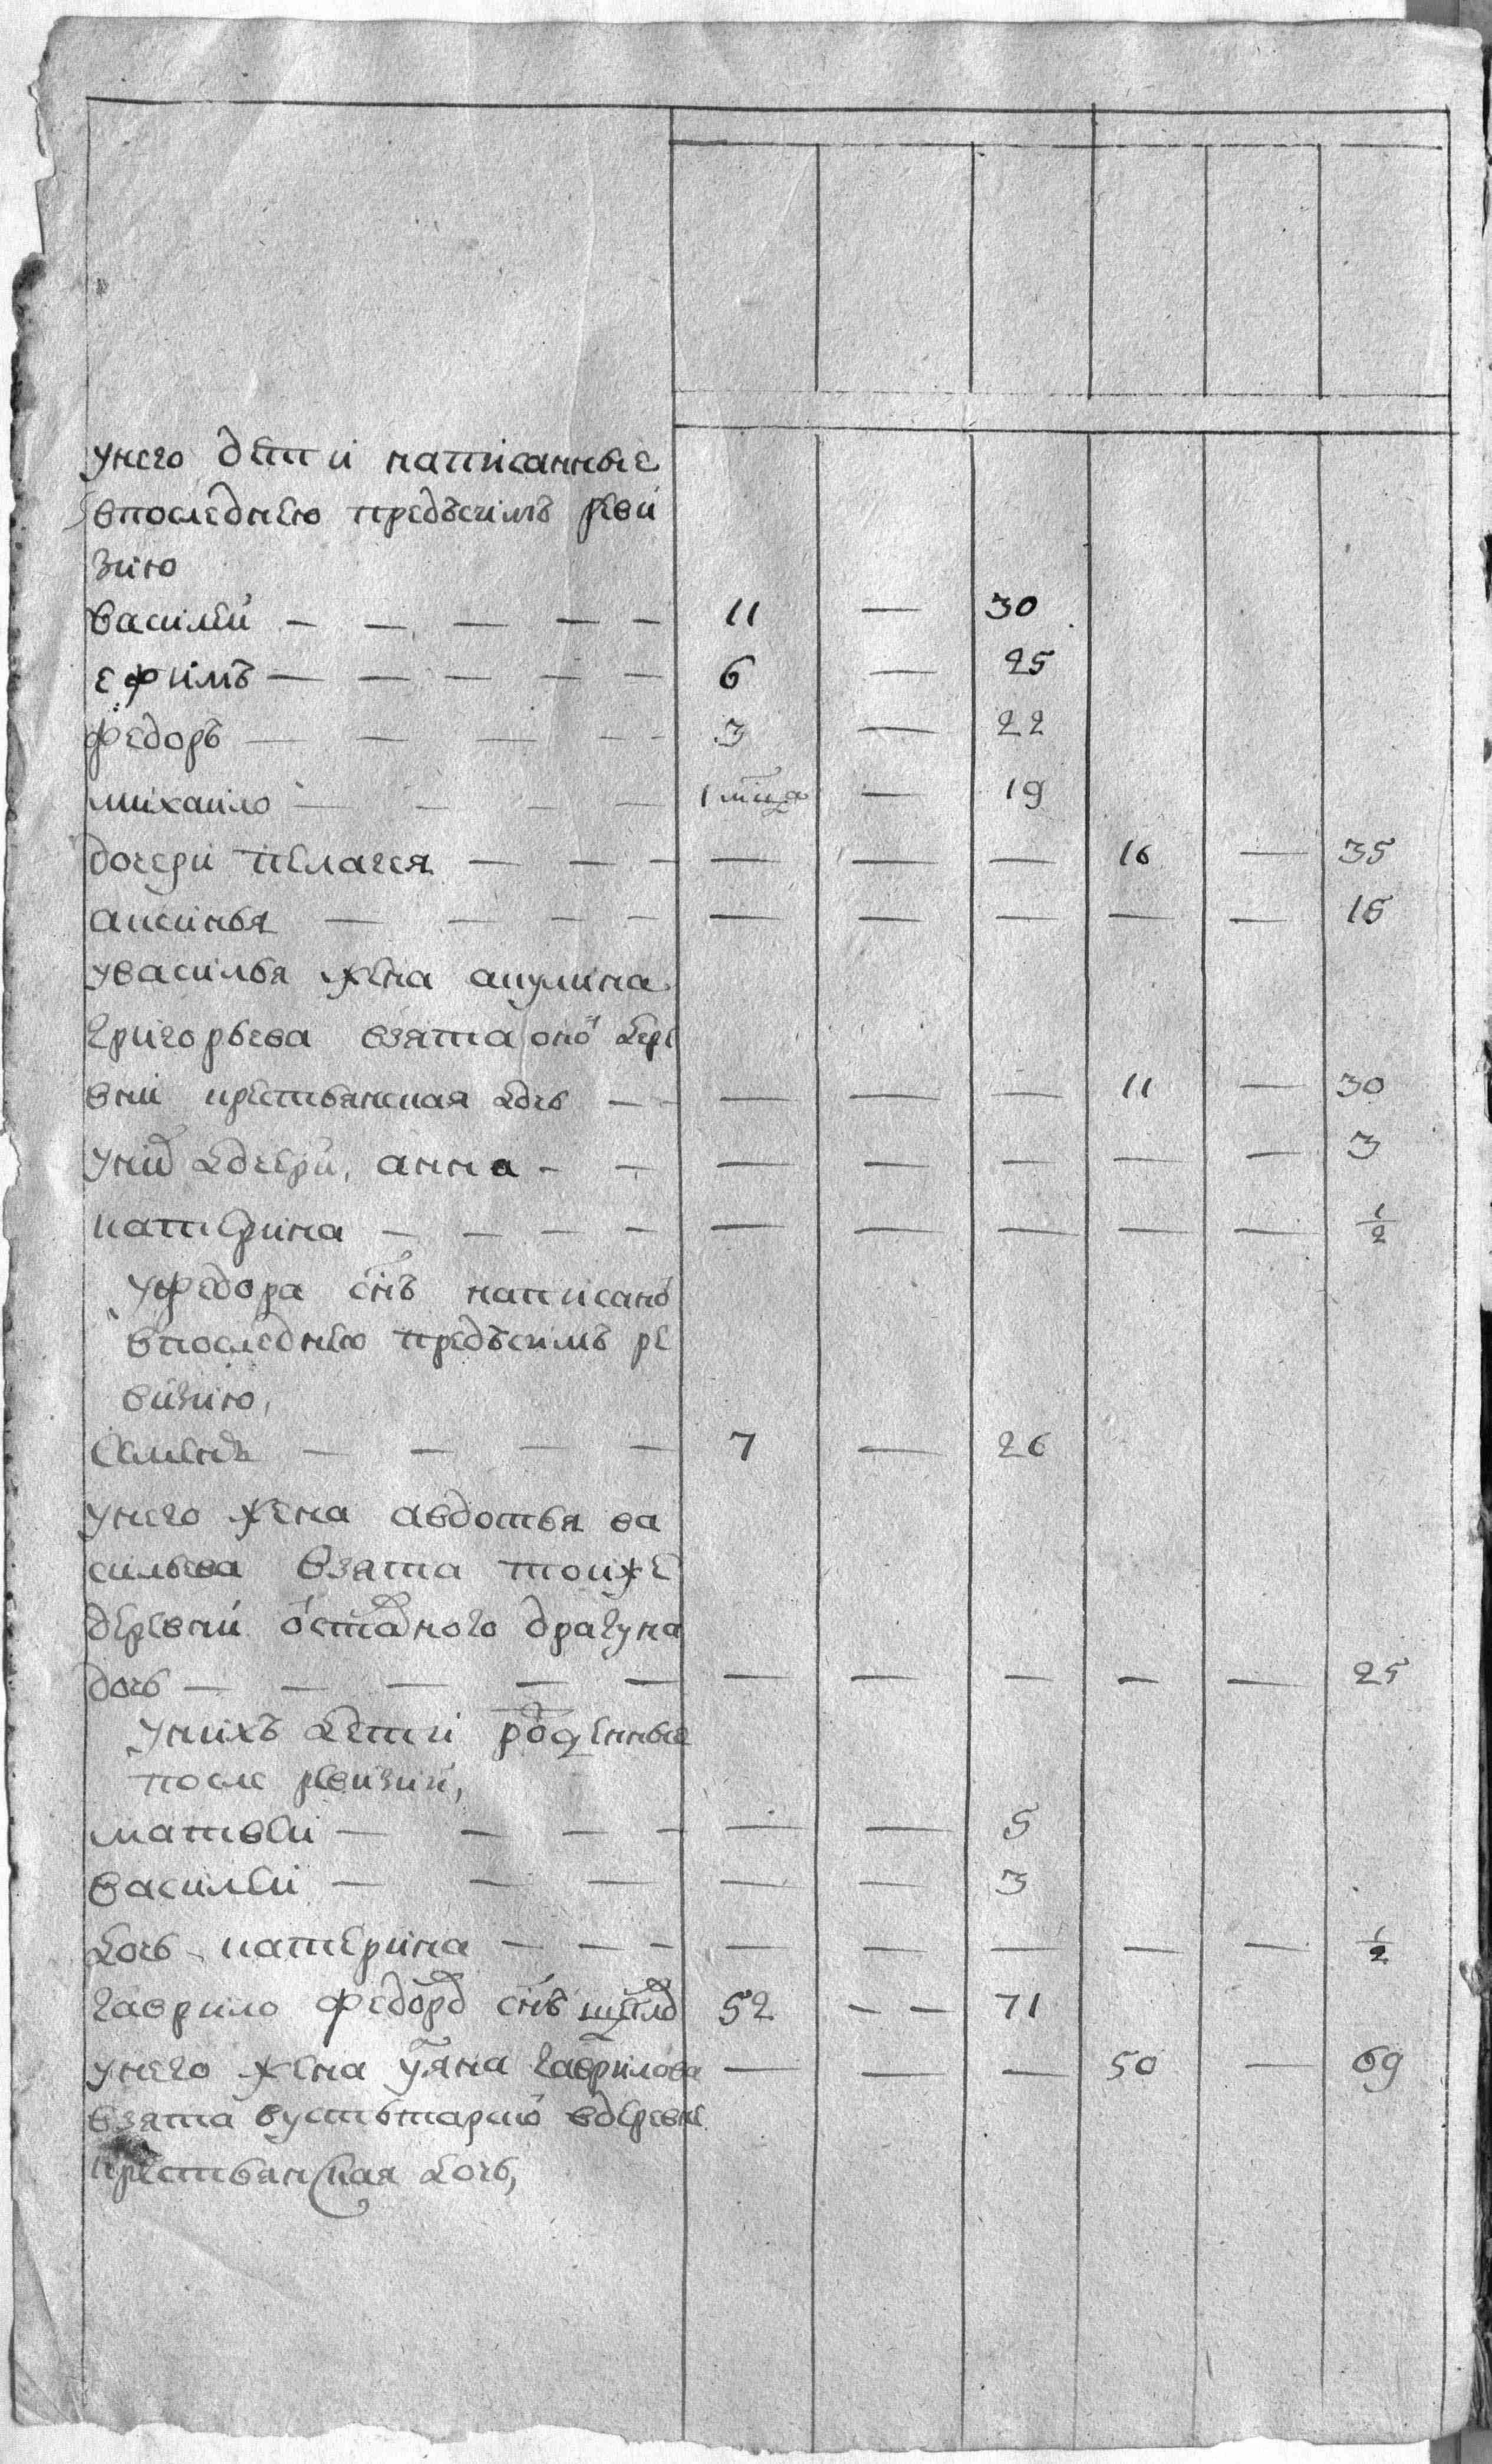 унего дети написанные
впоследнею предъсимъ реви
зию
василей — — — — — 11 — 30
ефимъ — — — — — 6 — 25
федоръ — — — — — 3 — 22
михаило — — — — 1 мца — 19
дочери пелагея — — — — — — 16 — 35
аксинья — — — — — — — — — 16
увасилья жена акулина
григорьева взята оной дере
вни крестьянская дочь — — — — — 11 — 30
уних дочери, анна — — — — — — — 3
катерина — — — — — — — — — 1/2
уфедора снъ написаной
впоследнею предъсимъ ре
визию,
семенъ — — — — 7 — 26
унего жена авдотья ва
сильева взята тоиже
деревни отставного драгуна
дочь — — — — — — — — — — 25
унихъ дети рожденные
после ревизии,
матвей — — — — — — 5
василей — — — — — 3
дочь катерина — — — — — — — — 1/2
гаврило федоров снъ 52 — — 71
унего жена уляна гаврилова — — — 50 — 69
взята вустьтарской вдеревне
крестьянская дочь,